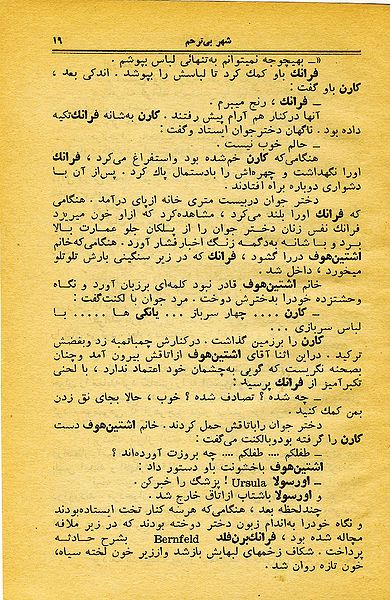 شهر بی‌ترحم ۱۹
«ـ بهیچوجه نمیتوانم به‌تنهائی لباس بپوشم .
فرانک باو کمك کرد تا لباسش را بپوشد . اندکی بعد ،
کارن باو گفت :
ـ فرانک ، رنج میبرم .
آنها درکنار هم آرام پیش رفتند . کارن به‌شانه فرانک‌تکیه
داده بود . ناگهان دخترجوان ایستاد وگفت :
ـ حالم خوب نیست .
هنگامی‌که کارن خم‌شده بود واستفراغ می‌کرد ، فرانک
اورا نگهداشت و چهره‌اش را بادستمال پاك کرد . پس‌از آن با
دشواری دوباره براه افتادند .
دختر جوان دربیست متری خانه ازپای درآمد . هنگامی
که فرانک اورا بلند می‌کرد ، مشاهده‌کرد که ازاو خون میریزد
فرانک نفس زنان دختر جوان را از پلکان جلو عمارت بالا
برد و با شانه به‌دگمه زنگ اخبارفشار آورد . هنگامی‌که‌خانم
اشتین‌هوف دررا گشود ، فرانک که در زیر سنگینی بارش تلوتلو
میخورد ، داخل شد .
خانم اشتین‌هوف قادر نبود کلمه‌ای برزبان آورد و نگاه
وحشتزده خودرا بدخترش دوخت . مرد جوان با لکنت‌گفت :
ـ کارن .... چهار سرباز ... یانکی ها ..... با
لباس سربازی ...
کارن را برزمین گذاشت . درکنارش چمباتمه زد وبغضش
ترکید . دراین اثنا آقای اشتین‌هوف ازاتاقش بیرون آمد وچنان
بصحنه نگریست که گویی به‌چشمان خود اعتماد ندارد ، با لحنی
تکبرآمیز از فرانک پرسید :
ـ چه شده ؟ تصادف شده ؟ خوب ، حالا بجای نق زدن
بمن کمك کنید .
دختر جوان راباتاقش حمل کردند . خانم اشتین‌هوف دست
کارن را گرفته بودوبالکنت می‌گفت :
ـ طفلکم .... طفلکم .... چه بروزت آورده‌اند ؟
اشتین‌هوف باخشونت باو دستور داد :
ـ اورسولا Ursula ! پزشگ را خبرکن .
و اورسولا باشتاب ازاتاق خارج شد .
چندلحظه بعد ، هنگامی‌که هرسه کنار تخت ایستاده‌بودند
و نگاه خودرا به‌اندام زبون دختر دوخته بودند که در زیر ملافه
مچاله شده بود ، فرانک‌برن‌فلد Bernfeld بشرح حادثه
پرداخت . شکاف زخمهای لبهایش بازشد واززیر خون لخته سیاه،
خون تازه روان شد .